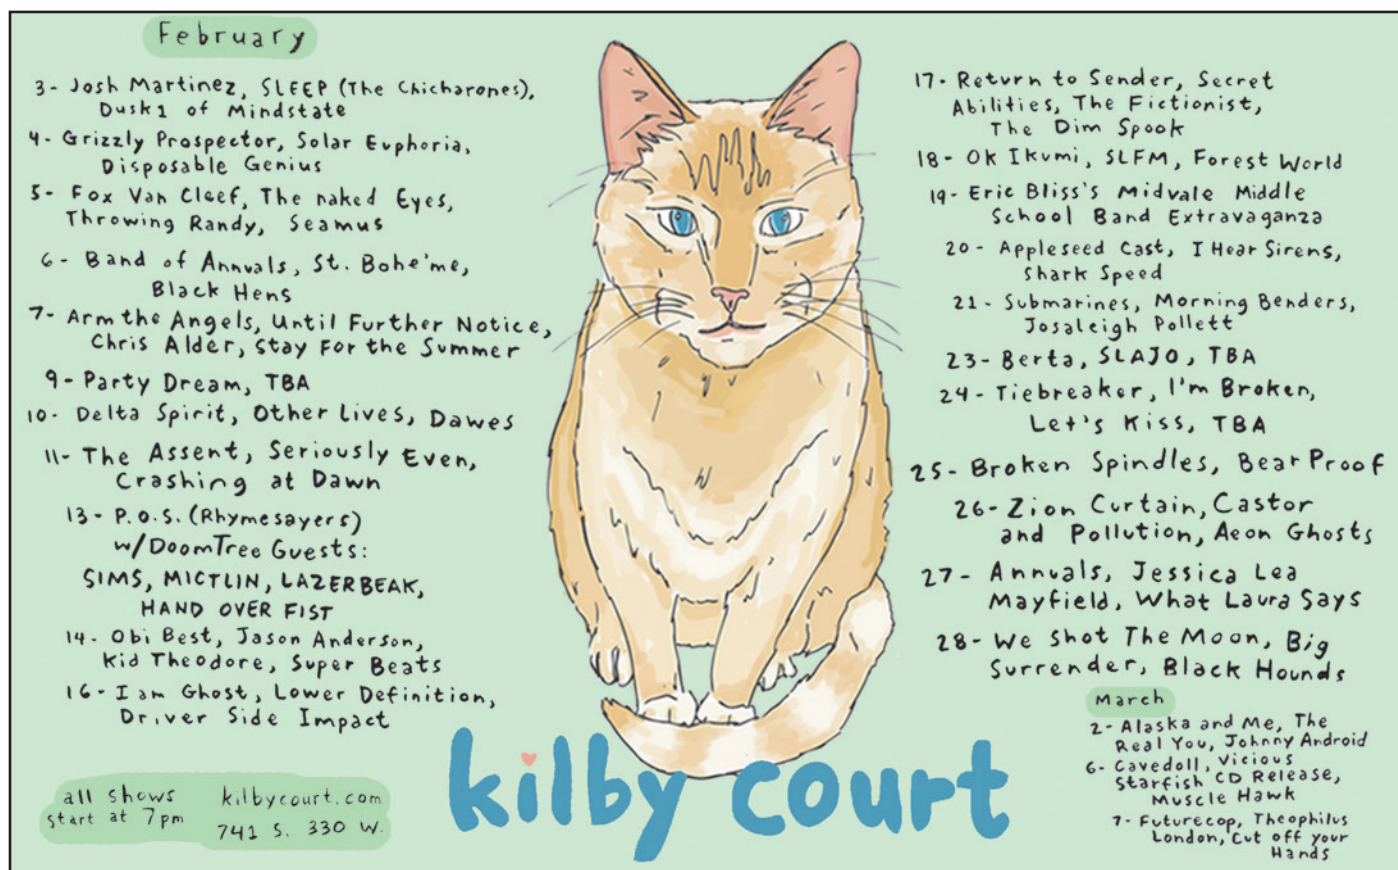 February
3- Josh Martinez, SLEEP (The Chicharones),
Dusk1 of Mindstate
4- Grizzly Prospector, Solar Euphoria,
Disposable Genius
5- Fox Van Cleef, The naked Eyes,
Throwing Randy, Seamus
6- Band of Annuals, St. Bohe'me,
Black Hens
7- Arm the Angels, Until Further Notice,
Chris Alder, Stay For the Summer
9- Party Dream, TBA
10- Delta Spirit, Other Lives, Dawes
11- The Assent, Seriously Even,
Crashing at Dawn
13- P.O.S. (Rhymesayers)
w/DoomTree Guests:
SIMS, MICTLIN, LAZERBEAK,
HAND OVER FIST
14- Obi Best, Jason Anderson,
Kid Theodore, Super Beats
16- I am Ghost, Lower Definition,
Driver Side Impact
all shows
start at 7pm
kilbycourt.com
741 S. 330 W.
kilby court
17- Return to Sender, Secret
Abilities, The Fictionist,
The Dim Spook
18- Ok Ikumi, SLFM, Forest World
19- Eric Bliss's Midvale Middle
School Band Extravaganza
20- Appleseed Cast, I Hear Sirens,
Shark Speed
21- Submarines, Morning Benders,
Josaleigh Pollett
23- Berta, SLAJO, TBA
24- Tiebreaker, I'm Broken,
Let's Kiss, TBA
25- Broken Spindles, Bear Proof
26- Zion Curtain, Castor
and Pollution, Aeon Ghosts
27- Annuals, Jessica Lea
Mayfield, What Laura Says
28- We Shot The Moon, Big
Surrender, Black Hounds
March
2- Alaska and Me, The
Real You, Johnny Android
6- Cavedoll, Vicious
Starfish CD Release,
Muscle Hawk
7- Futurecop, Theophilus
London, Cut off your
Hands